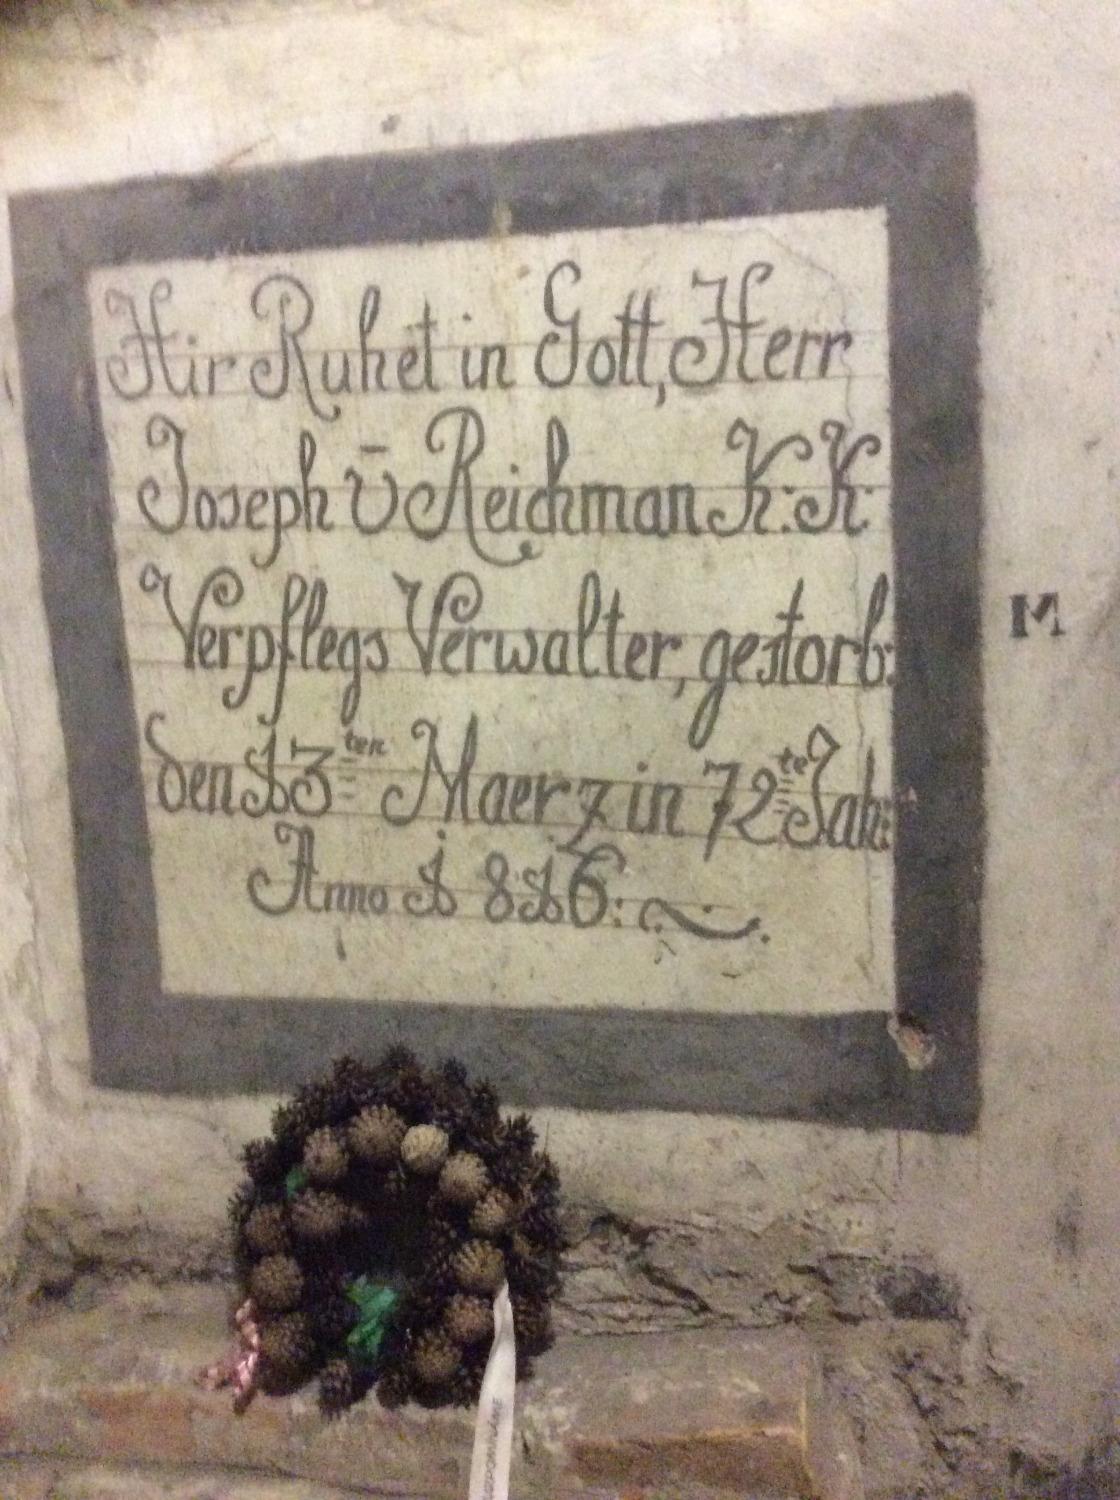 Hir Ruhet in Gott, Herr
Joseph v̄ Reichman K: K:
Verpflegs Verwalter, gestorb:
den 13ten Maerz in 72te Jah:
Anno 1816:
M